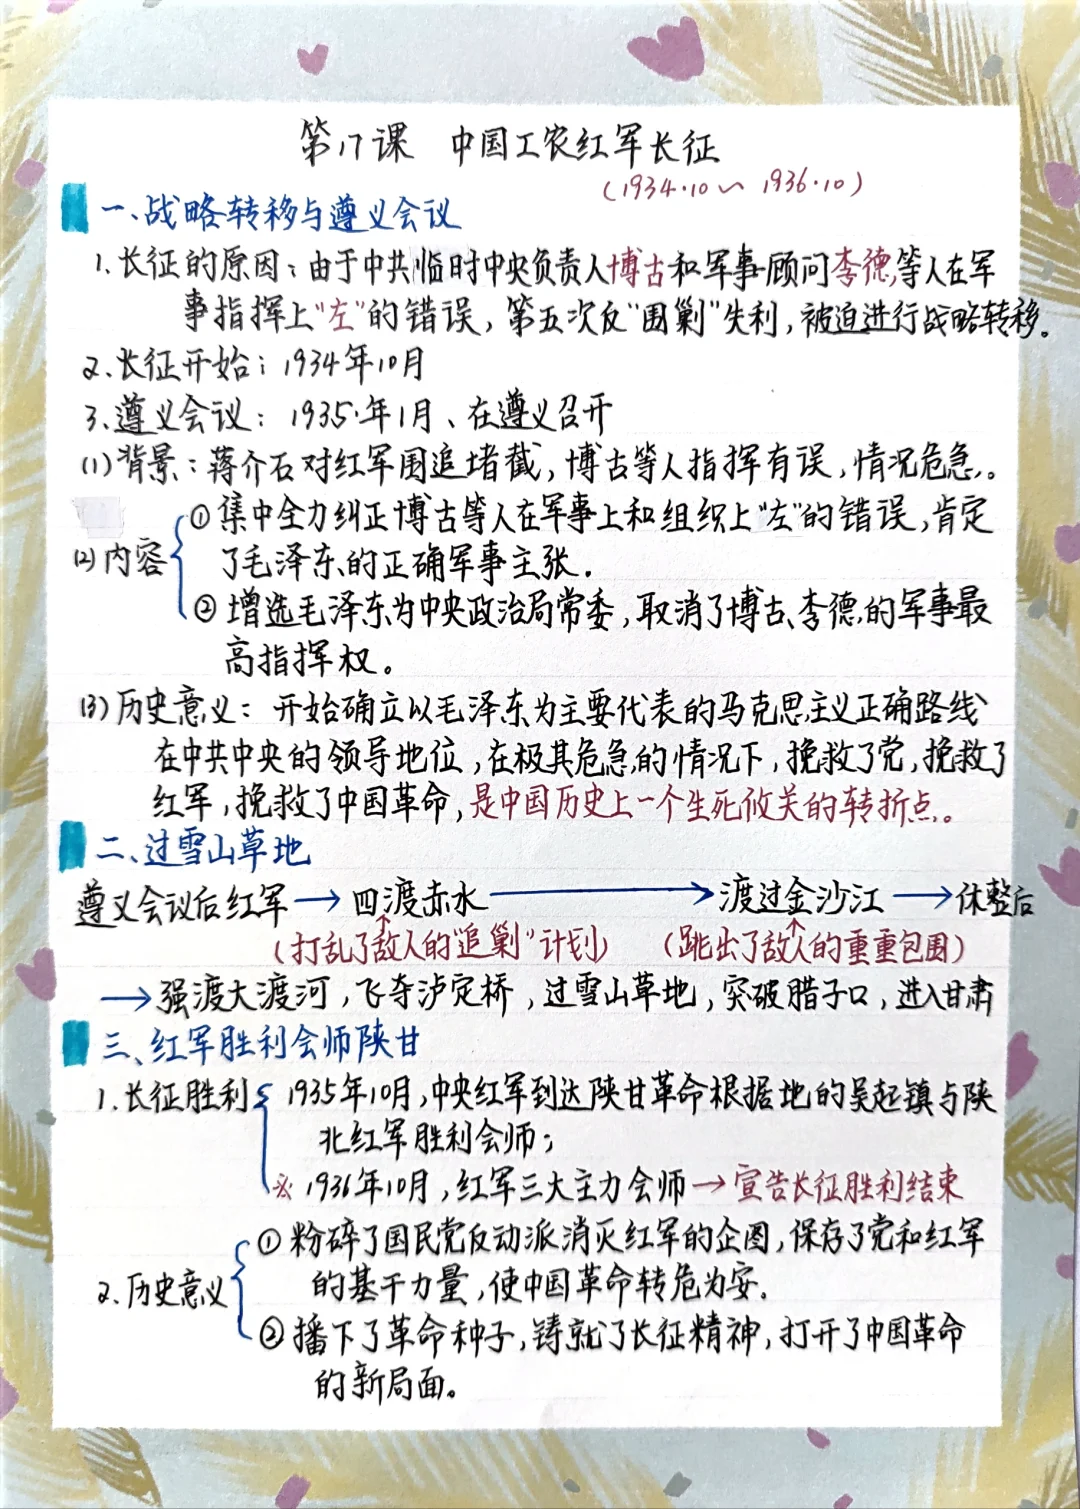 第17课 中国工农红军长征
(1934.10～1936.10)
一、战略转移与遵义会议
1.长征的原因：由于中共临时中央负责人博古和军事顾问李德等人在军
事指挥上"左"的错误，第五次反"围剿"失利，被迫进行战略转移。
2.长征开始：1934年10月
3.遵义会议：1935年1月、在遵义召开
(1)背景：蒋介石对红军围追堵截，博古等人指挥有误，情况危急。
①集中全力纠正博古等人在军事上和组织上"左"的错误，肯定
(2)内容
了毛泽东的正确军事主张.
②增选毛泽东为中央政治局常委，取消了博古、李德的军事最
高指挥权。
(3)历史意义：开始确立以毛泽东为主要代表的马克思主义正确路线
在中共中央的领导地位，在极其危急的情况下，挽救了党，挽救了
红军，挽救了中国革命，是中国历史上一个生死攸关的转折点。
二、过雪山草地
遵义会议后红军→四渡赤水→渡过金沙江→休整后
(打乱了敌人的"追剿"计划) (跳出了敌人的重重包围)
→强渡大渡河，飞夺泸定桥，过雪山草地，突破腊子口，进入甘肃
三、红军胜利会师陕甘
1.长征胜利 1935年10月，中央红军到达陕甘革命根据地的吴起镇与陕
北红军胜利会师；
※1936年10月，红军三大主力会师→宣告长征胜利结束
①粉碎了国民党反动派消灭红军的企图，保存了党和红军
2.历史意义
的基干力量，使中国革命转危为安.
②播下了革命种子，铸就了长征精神，打开了中国革命
的新局面。